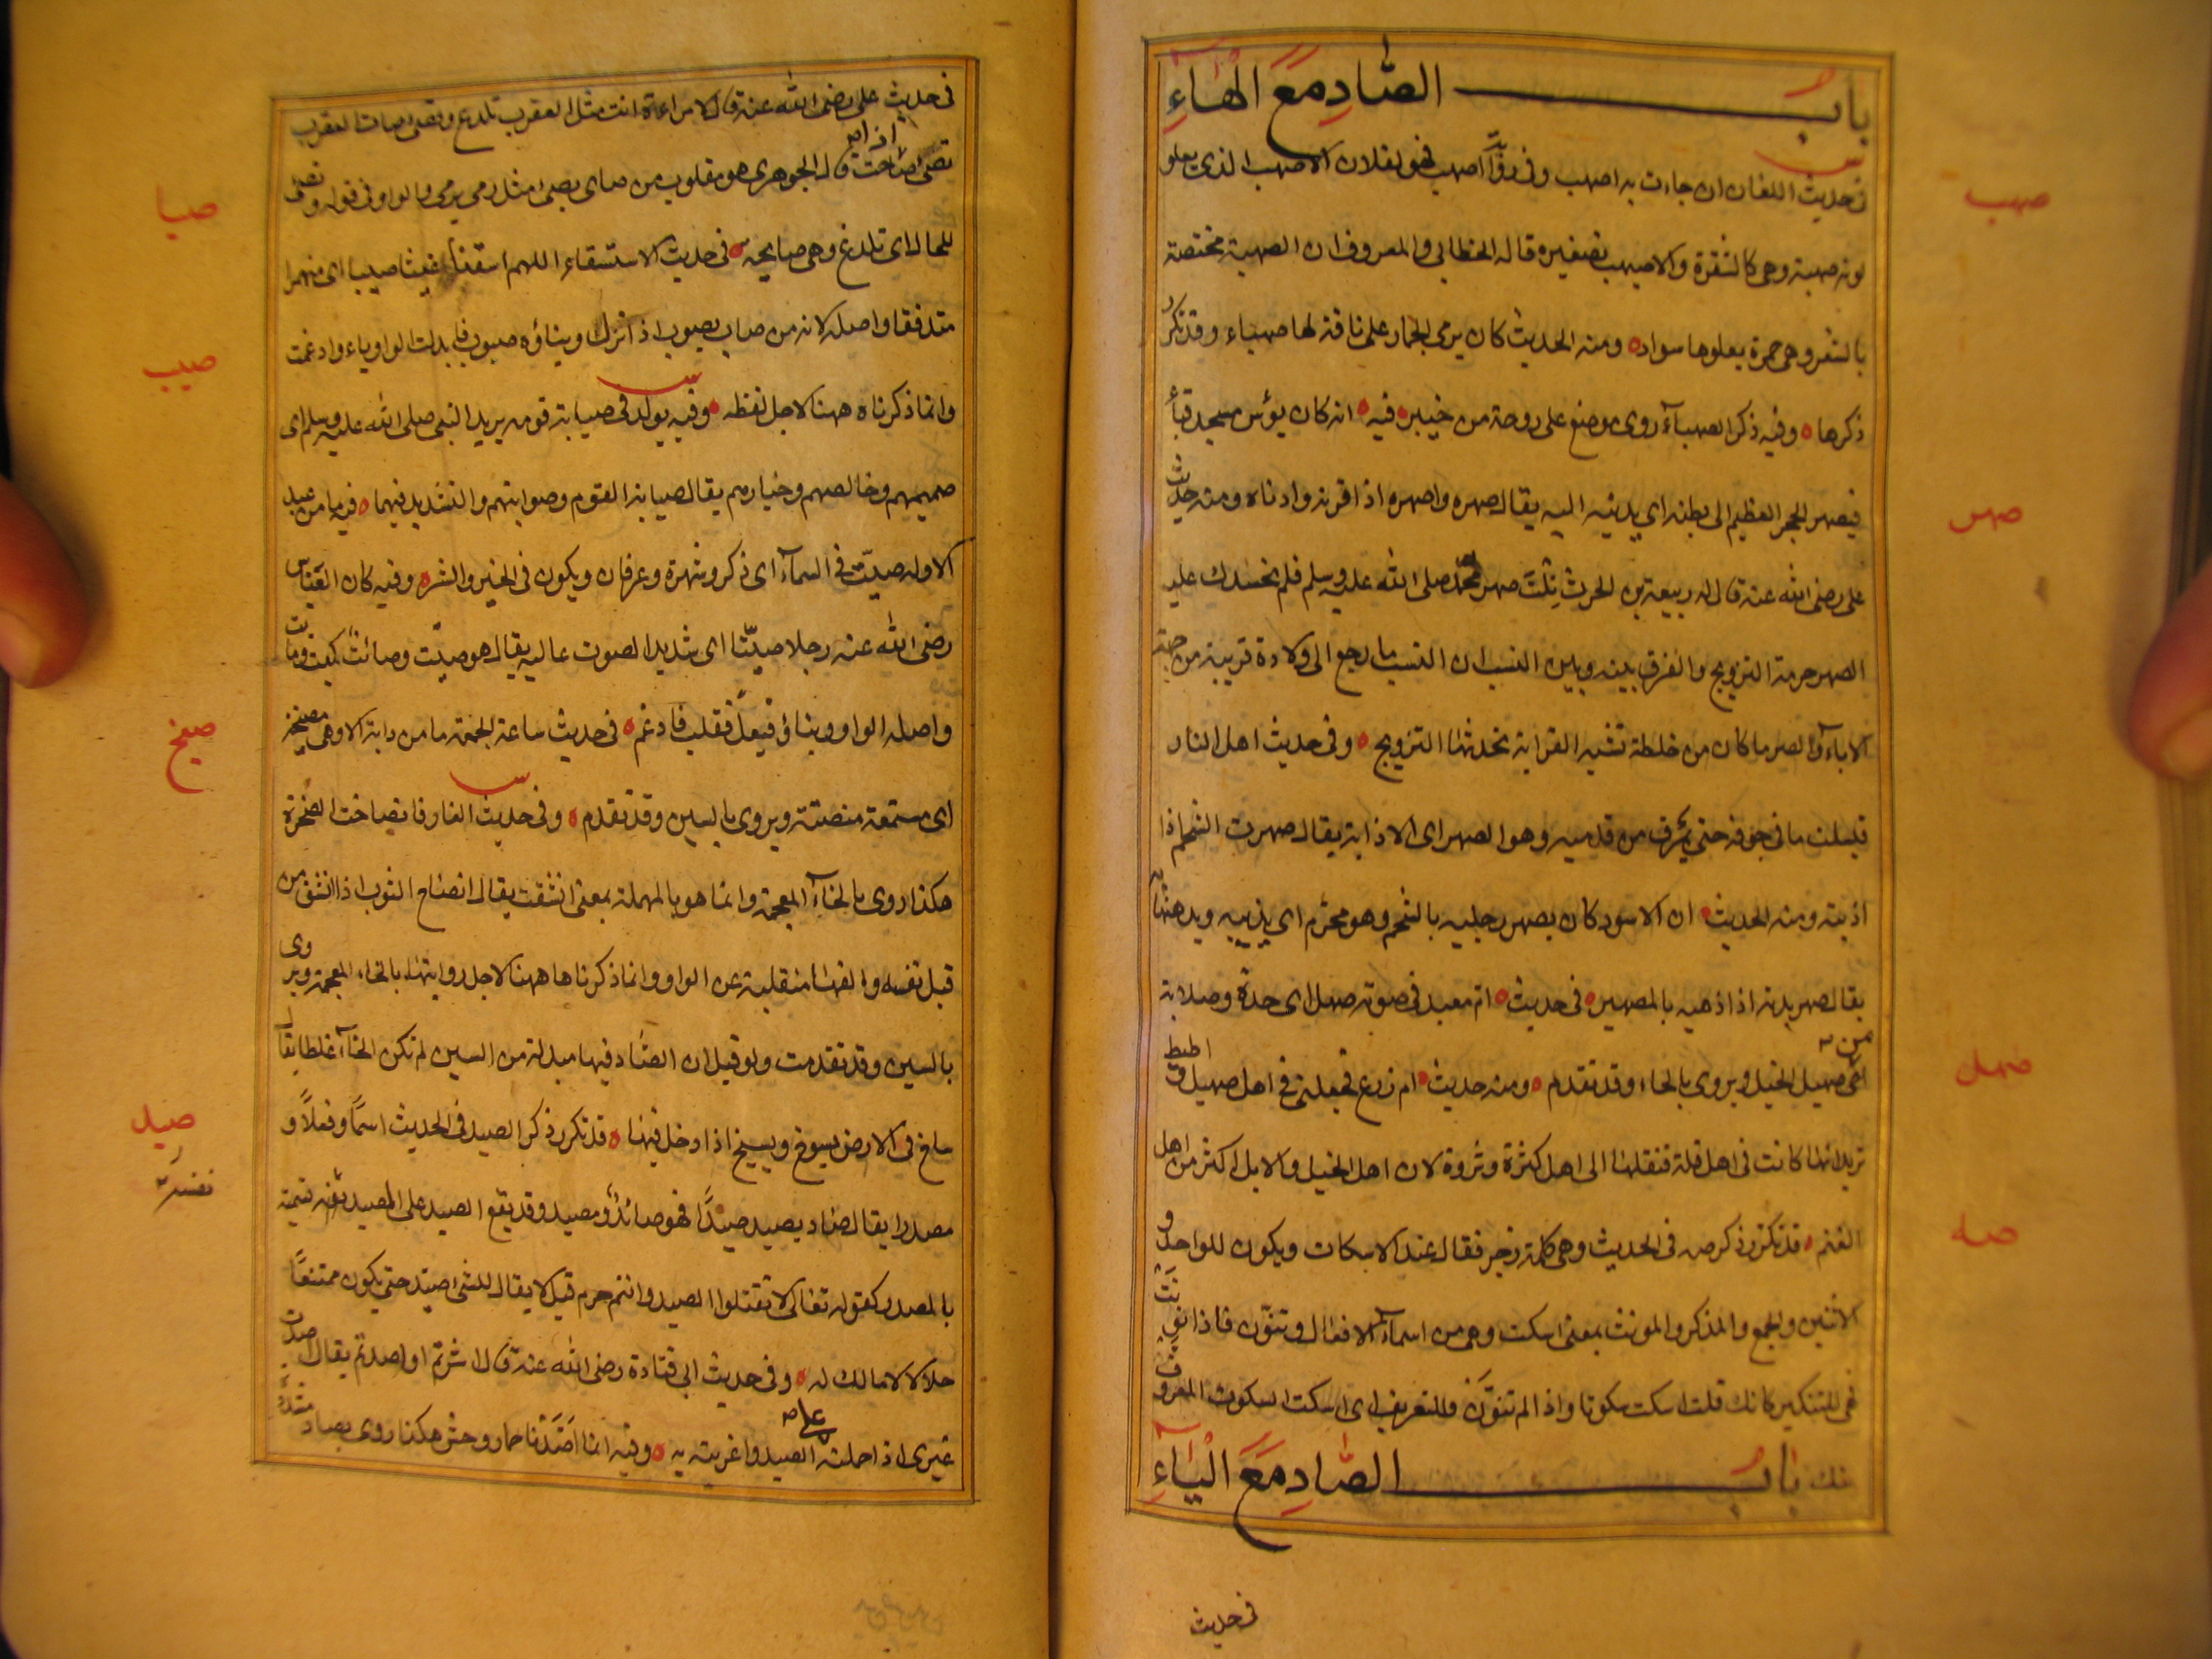 باب الصَّادِ مَعَ الْهَاءِ
فى حديث اللعان ان جاءت به اصهب وفى رواية اصيهب فهو لفلان الاصهب الذى يعلو
لونه صهبة وهى كالشقرة والاصيهب تصغيره قاله الخطابى والمعروف ان الصهبة مختصة
بالشعر وهى حمرة يعلوها سواد ومنه الحديث كان يرمى الجمار على ناقة لها صهباء وقد تكرر
ذكرها وفيه ذكر الصهبآء وهى موضع على روحة من خيبر فيه انه كان يؤسس مسجد قباء
فيصهر الحجر العظيم الى بطنه اى يدنيه اليه يقال صهره واصهره اذا قربه وادناه ومنه حديث
على رضى الله عنه قال له ربيعة بن الحرث نِلْتَ صهر محمد صلى الله عليه وسلم فلم نحسدك عليه
الصهر حرمة التزويج والفرق بينه وبين النسب ان النسب ما رجع الى ولادة قريبة من جهة
الاباء والصهر ما كان من خلطة تشبه القرابة يحدثها التزويج وفى حديث اهل النار
فيسلت ما فى جوفه حتى يمرق من قدميه وهو الصهر اى الاذابة يقال صهرت الشحم اذا
اذبته ومنه الحديث ان الاسود كان يصهر رجليه بالشحم وهو محرم اى يذيبه ويدهنهما
يقال صهر بدنه اذا دهنه بالصهير فى حديث ام معبد فى صوته صهل اى حدة وصلابة
من صهيل الخيل ويروى بالحاء وقد تقدم ومنه حديث ام زرع فجعلنى فى اهل صهيل واطيط
تريد انها كانت فى اهل قلة فنقلها الى اهل كثرة وثروة لان اهل الخيل والابل اكثر من اهل
الغنم قد تكرر ذكر صه فى الحديث وهى كلمة زجر تقال عند الاسكات ويكون للواحد و
الاثنين والجمع والمذكر والمونث بمعنى اسكت وهى من اسمآء الافعال وتنوّن فاذا نونت
فهى للتنكير كانك قلت اسكت سكوتا واذا لم تنوّن فللتعريف اى اسكت السكوت المعروف
منك باب الصَّادِ مَعَ الْيَاءِ
فى حديث
صهب
صهر
صهل
صه
فى حديث على رضى الله عنه قال لامراءة انت مثل العقرب تلدغ وتصئ صات العقرب
تصئ اذا صاحت قال الجوهرى هو مقلوب من صاى يصئ مثل رمى يرمى والواو فى قوله وتصئ
للحال اى تلدغ وهى صايحه فى حديث الاستسقاء اللهم اسقنا غيثا صيبا اى منهمرا
متدفقا واصله لانه من صاب يصوب اذا نزل وبناؤه صيوب فابدلت الواو ياء وادغمت
وانما ذكرناه ههنا لاجل لفظه وفيه يولد فى صيابة قومه يريد النبى صلى الله عليه وسلم اى
صميمهم وخالصهم وخيارهم يقال صيابة القوم وصوابتهم والتشديد فيهما فيه ما من عبد
الا وله صيت فى السمآء اى ذكر وشهرة وعرفان ويكون فى الخير والشر وفيه كان العباس
رضى الله عنه رجلا صيّتا اى شديد الصوت عاليه يقال هو صيّت وصائت كميت ومائت
واصله الواو وبناؤه فيعل فقلب فادغم فى حديث ساعة الجمعة ما من دابة الا وهى مصيخة
اى مستمعة منصتة ويروى بالسين وقد تقدم وفى حديث الغار فانصاخت الصخرة
هكذا روى بالخاء المعجمة وانما هو بالمهملة بمعنى انشقت يقال انصاح الثوب اذا انشق من
قبل نفسه والفها منقلبة عن الواو وانما ذكرناها ههنا لاجل روايتها بالخاء المعجمة ويروى
بالسين وقد تقدمت ولو قيل ان الصاد فيها مبدلة من السين لم تكن الخاء غلطا يقال
ساخ فى الارض يسوخ ويسيخ اذا دخل فيها قد تكرر ذكر الصيد فى الحديث اسمًا وفعلاً و
مصدرا يقال صاد يصيد صيدًا فهو صائد ومصيد وقد يقع الصيد على المصيد نفسه تسمية
بالمصدر كقوله تعالى لا تقتلوا الصيد وانتم حرم قيل لا يقال للشئ صيد حتى يكون ممتنعًا
حلالا لا مالك له وفى حديث ابى قتادة رضى الله عنه قال اشرتم او اصدتم يقال اصدت
غيرى اذا حملته على الصيد واغريته به وفيه انا اصّدنا حمار وحش هكذا روى بصاد مشددة
صيا
صيب
صيخ
صيد
نفسه